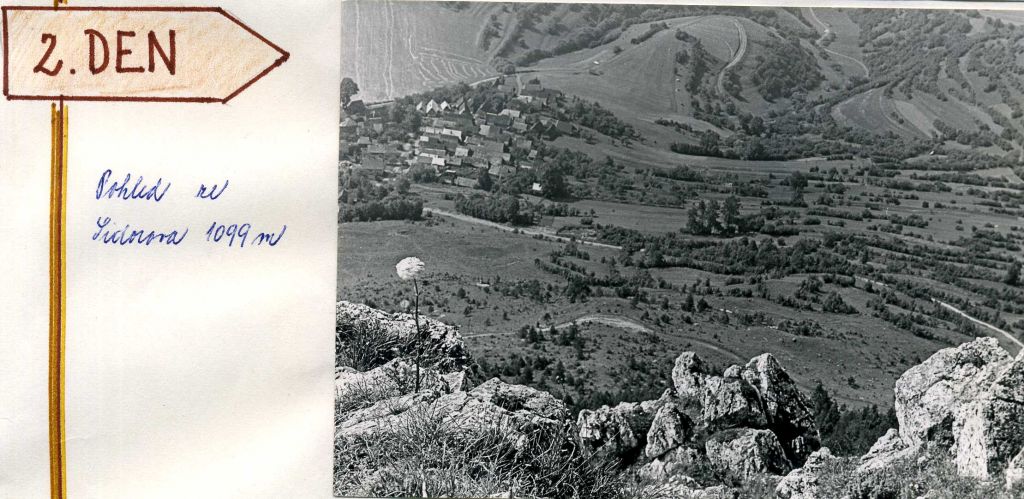 2. DEN
Pohled ze
Sidorova 1099 m